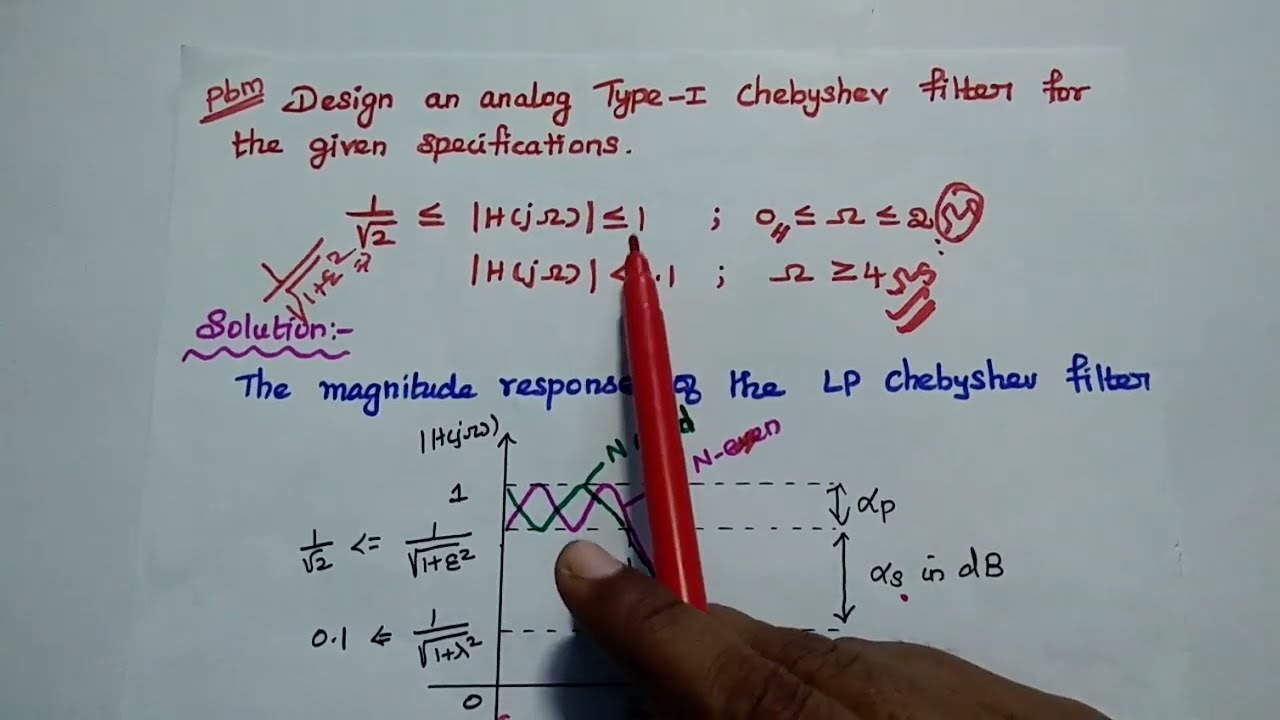 Pbm Design an analog Type-I Chebyshev filter for
the given specifications.
1/√2 ≤ |H(jΩ)| ≤ 1 ; 0 ≤ Ω ≤ 2
1/√1+ε²
|H(jΩ)| < .1 ; Ω ≥ 4
Solution:-
The magnitude response of the LP Chebyshev filter
|H(jΩ)|
N d
N-even
1
αp
1/√2 <= 1/√1+ε²
αs in dB
0.1 <= 1/√1+λ²
0